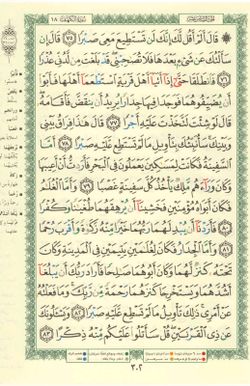 ۞ قَالَ أَلَمْ أَقُل لَّكَ إِنَّكَ لَن تَسْتَطِيعَ مَعِيَ صَبْرًا ٧٥ قَالَ إِن
سَأَلْتُكَ عَن شَيْءٍ بَعْدَهَا فَلَا تُصَاحِبْنِي قَدْ بَلَغْتَ مِن لَّدُنِّي عُذْرًا
٧٦ فَانطَلَقَا حَتَّىٰ إِذَا أَتَيَا أَهْلَ قَرْيَةٍ اسْتَطْعَمَا أَهْلَهَا فَأَبَوْا
أَن يُضَيِّفُوهُمَا فَوَجَدَا فِيهَا جِدَارًا يُرِيدُ أَن يَنقَضَّ فَأَقَامَهُ
قَالَ لَوْ شِئْتَ لَتَّخَذْتَ عَلَيْهِ أَجْرًا ٧٧ قَالَ هَٰذَا فِرَاقُ بَيْنِي
وَبَيْنِكَ سَأُنَبِّئُكَ بِتَأْوِيلِ مَا لَمْ تَسْتَطِع عَّلَيْهِ صَبْرًا ٧٨ أَمَّا
السَّفِينَةُ فَكَانَتْ لِمَسَاكِينَ يَعْمَلُونَ فِي الْبَحْرِ فَأَرَدتُّ أَنْ أَعِيبَهَا
وَكَانَ وَرَاءَهُم مَّلِكٌ يَأْخُذُ كُلَّ سَفِينَةٍ غَصْبًا ٧٩ وَأَمَّا الْغُلَامُ
فَكَانَ أَبَوَاهُ مُؤْمِنَيْنِ فَخَشِينَا أَن يُرْهِقَهُمَا طُغْيَانًا وَكُفْرًا
٨٠ فَأَرَدْنَا أَن يُبْدِلَهُمَا رَبُّهُمَا خَيْرًا مِّنْهُ زَكَاةً وَأَقْرَبَ رُحْمًا
٨١ وَأَمَّا الْجِدَارُ فَكَانَ لِغُلَامَيْنِ يَتِيمَيْنِ فِي الْمَدِينَةِ وَكَانَ
تَحْتَهُ كَنزٌ لَّهُمَا وَكَانَ أَبُوهُمَا صَالِحًا فَأَرَادَ رَبُّكَ أَن يَبْلُغَا
أَشُدَّهُمَا وَيَسْتَخْرِجَا كَنزَهُمَا رَحْمَةً مِّن رَّبِّكَ وَمَا فَعَلْتُهُ
عَنْ أَمْرِي ذَٰلِكَ تَأْوِيلُ مَا لَمْ تَسْطِع عَّلَيْهِ صَبْرًا ٨٢ وَيَسْأَلُونَكَ
عَن ذِي الْقَرْنَيْنِ قُلْ سَأَتْلُو عَلَيْكُم مِّنْهُ ذِكْرًا ٨٣
٣٠٢